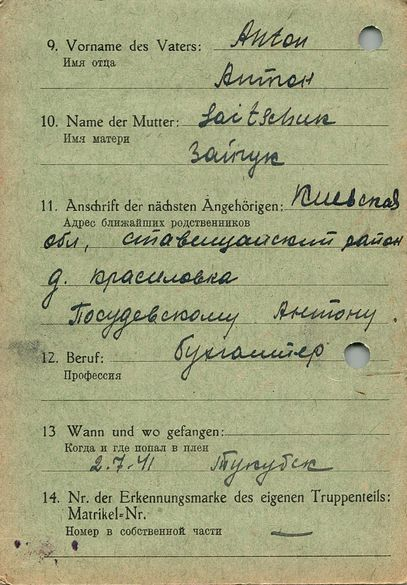 9. Vorname des Vaters: Anton
Имя отца
Антон
10. Name der Mutter: Saitschuk
Имя матери
Зайчук
11. Anschrift der nächsten Angehörigen: Киевская
Адрес ближайших родственников
обл, ставищанский район
д. красиловка
Посудевскому Антону.
12. Beruf: бухгалтер
Профессия
13 Wann und wo gefangen:
Когда и где попал в плен
2.7.41
14. Nr. der Erkennungsmarke des eigenen Truppenteils:
Matrikel-Nr.
Номер в собственной части —